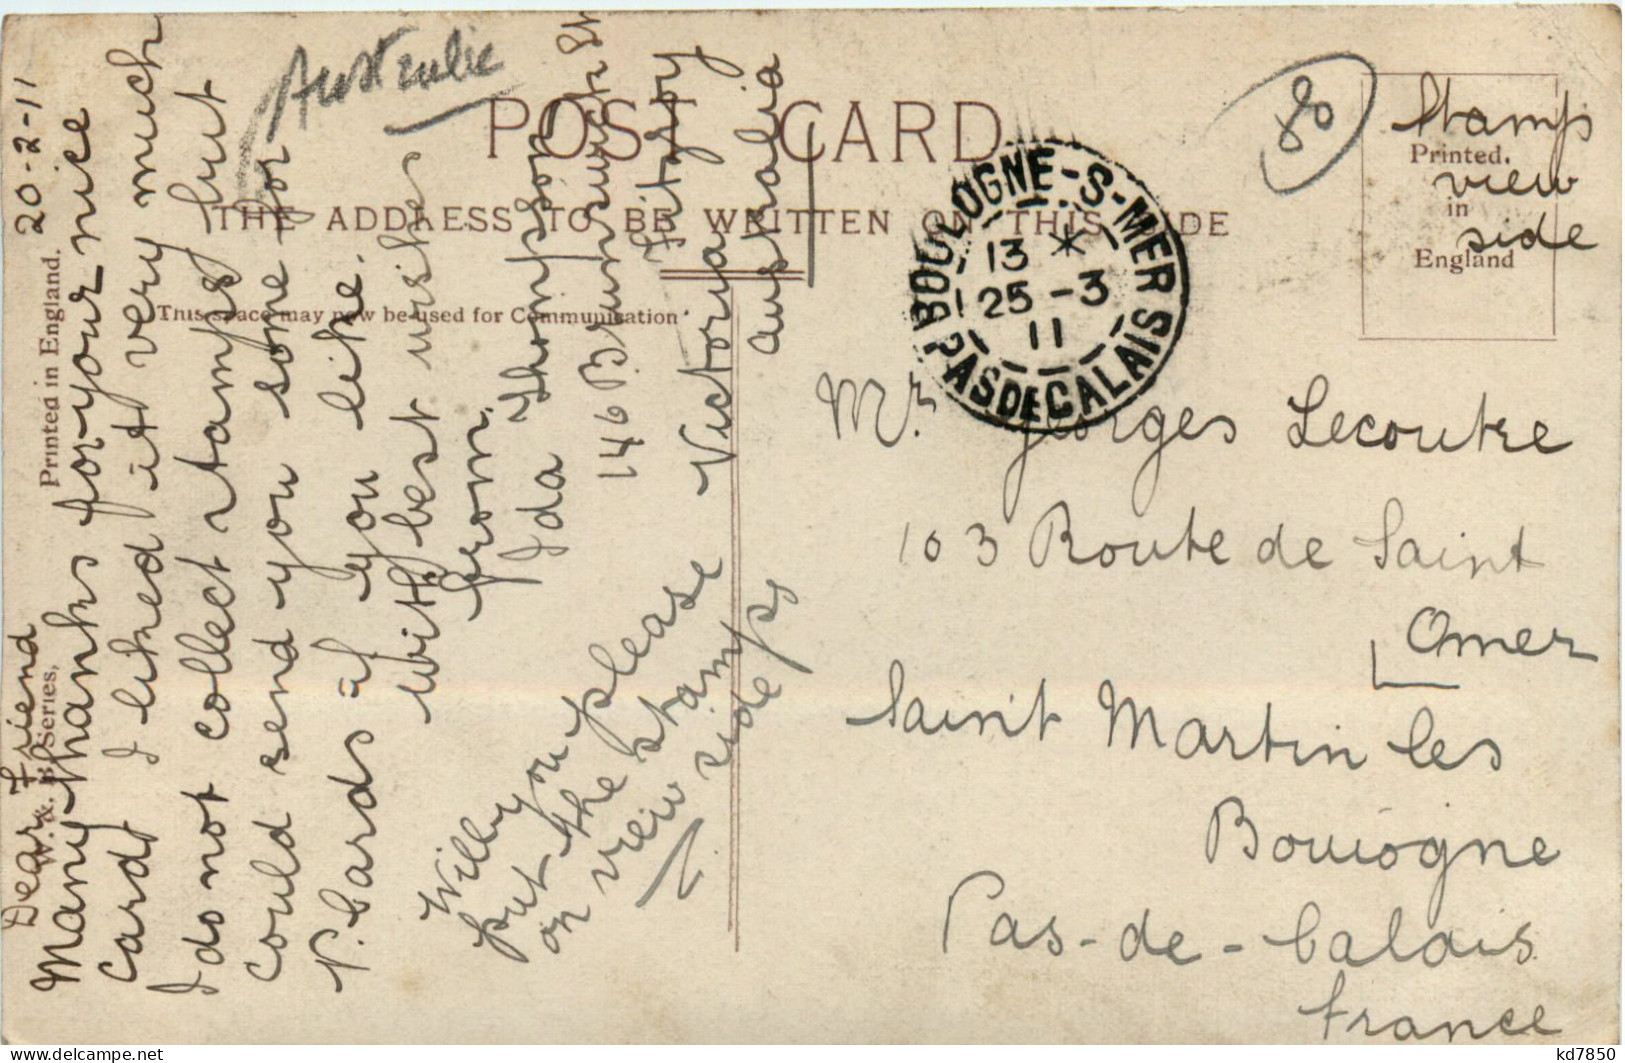 20-2-11
Dear Friend
Many thanks for your nice
Card I liked it very much
I do not collect stamps but
could send you some for
P. Cards if you like.
With best wishes
from.
Ida Thompson
146 Brunswick St
Fitzroy
Victoria
Australia
Will you please
put the stamps
on view side
Australie
POST CARD
THE ADDRESS TO BE WRITTEN ON THIS SIDE
This space may now be used for Communication
W. & B. Series.
Printed in England.
80
Stamps
view
side
Printed.
in
England
BOULOGNE-S-MER
13 *
25 -3
11
PAS DE CALAIS
Mr. Georges Lecoutre
103 Route de Saint
Omer
Saint Martin les
Boulogne
Pas-de-Calais
France
kd7850